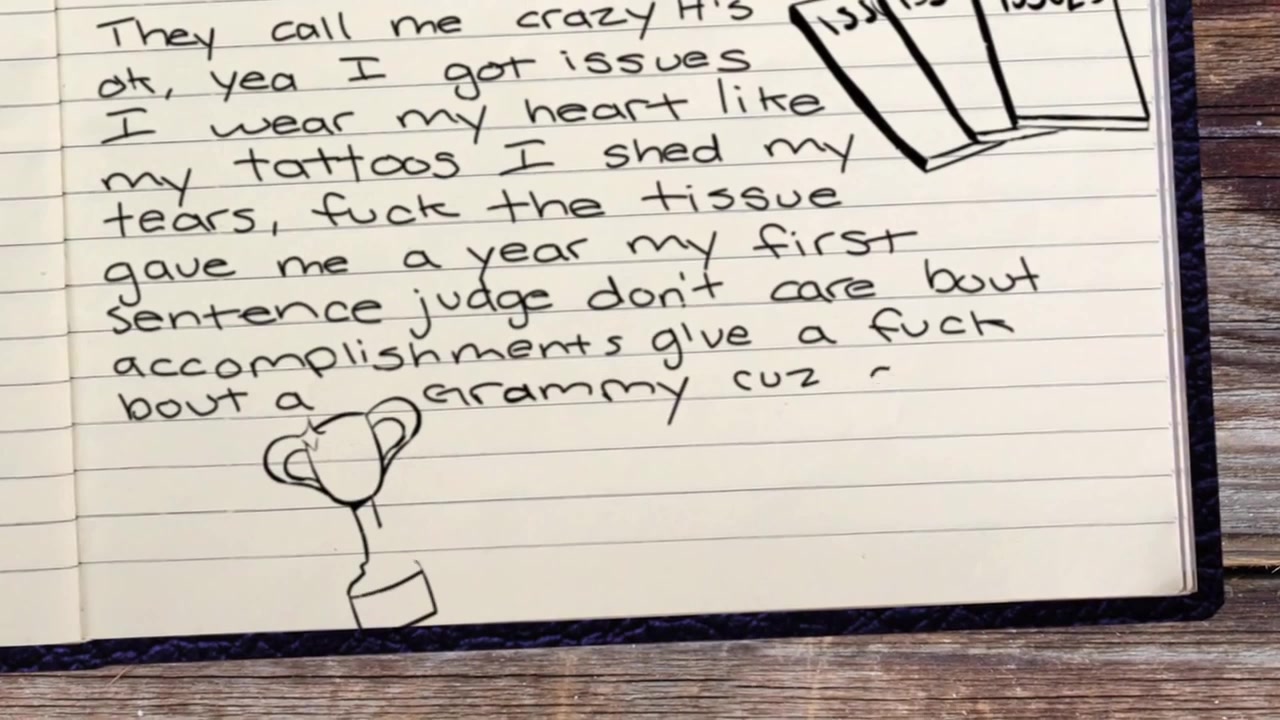 They call me crazy it's
ISSUES
ok, yea I got issues
I wear my heart like
my tattoos I shed my
tears, fuck the tissue
gave me a year my first
sentence judge don't care bout
accomplishments give a fuck
bout a Grammy cuz